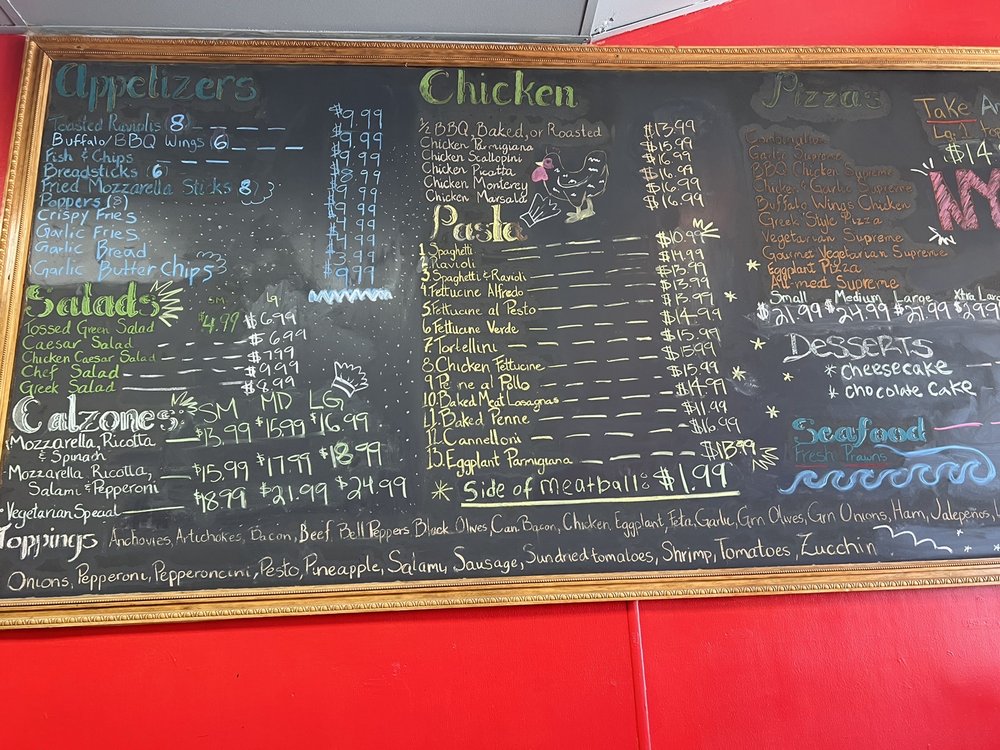 Appetizers
Toasted Raviolis (8) $9.99
Buffalo/BBQ Wings (6) 9.99
Fish & Chips 9.99
Breadsticks (6) 8.99
Fried Mozzarella Sticks (8) 9.99
Poppers (8) 9.99
Crispy Fries
Garlic Fries
Garlic Bread
Garlic Butter Chips 9.99
Salads SM Lg
Tossed Green Salad $4.99 $6.99
Caesar Salad $6.99
Chicken Caesar Salad $7.99
Chef Salad $9.99
Greek Salad $8.99
Calzones SM MD LG
Mozzarella, Ricotta & Spinach $13.99 $15.99 $16.99
Mozzarella, Ricotta, Salami & Pepperoni $15.99 $17.99 $18.99
Vegetarian Special $18.99 $21.99 $24.99
Chicken
½ BBQ, Baked, or Roasted $13.99
Chicken Parmigiana $15.99
Chicken Scallopini $16.99
Chicken Picatta $16.99
Chicken Monterey $16.99
Chicken Marsala $16.99
Pasta
1. Spaghetti $10.99
2. Ravioli $14.99
3. Spaghetti & Ravioli $13.99
4. Fettucine Alfredo $13.99
5. Fettucine al Pesto $14.99
6. Fettucine Verde $15.99
7. Tortellini $15.99
8. Chicken Fettucine $15.99
9. Penne al Pollo $14.99
10. Baked Meat Lasagnas $11.99
11. Baked Penne $16.99
12. Cannelloni
13. Eggplant Parmigiana $13.99
Side of meatballs $1.99
Pizzas
Combination
Garlic Supreme
BBQ Chicken Supreme
Chicken & Garlic Supreme
Buffalo Wings Chicken
Greek Style Pizza
Vegetarian Supreme
Gourmet Vegetarian Supreme
Eggplant Pizza
All meat Supreme
Small Medium Large Xtra
$21.99 $24.99 $27.99
Take
Lg. 1
$14
Desserts
cheesecake
chocolate cake
Seafood
Fresh Prawns
Toppings Anchovies, Artichokes, Bacon, Beef, Bell Peppers Black Olives, Can Bacon, Chicken, Eggplant, Feta, Garlic, Grn Olives, Grn Onions, Ham, Jalepeños,
Onions, Pepperoni, Pepperoncini, Pesto, Pineapple, Salami, Sausage, Sundried tomatoes, Shrimp, Tomatoes, Zucchin